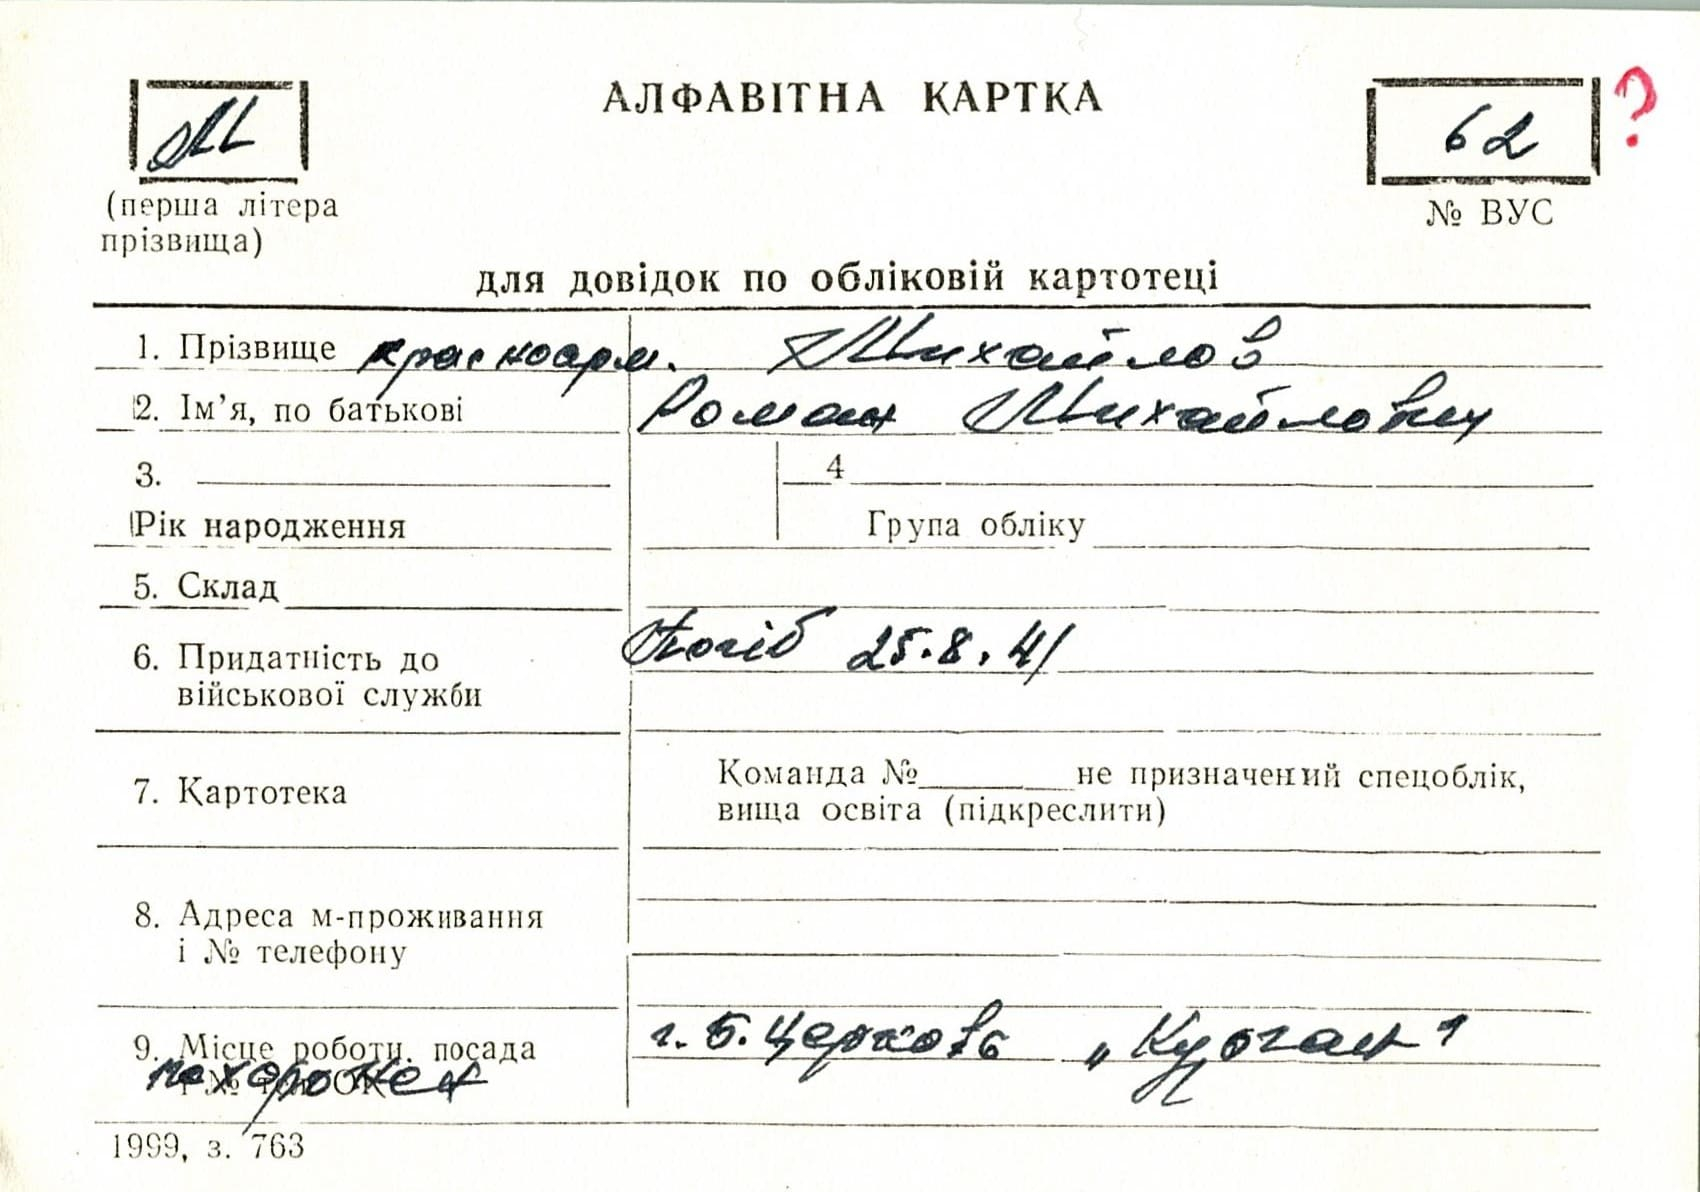 АЛФАВІТНА КАРТКА
М
62 ?
(перша літера
прізвища)
№ ВУС
для довідок по обліковій картотеці
1. Прізвище красноарм. Михайлов
2. Ім’я, по батькові Роман Михайлович
3. 4
Рік народження Група обліку
5. Склад
6. Придатність до Погіб 25.8.41
військової служби
7. Картотека Команда №______ не призначений спецоблік,
вища освіта (підкреслити)
8. Адреса м-проживання
і № телефону
9. Місце роботи, посада г. Б. Церковь „Курган"
похоронен
1999, з. 763